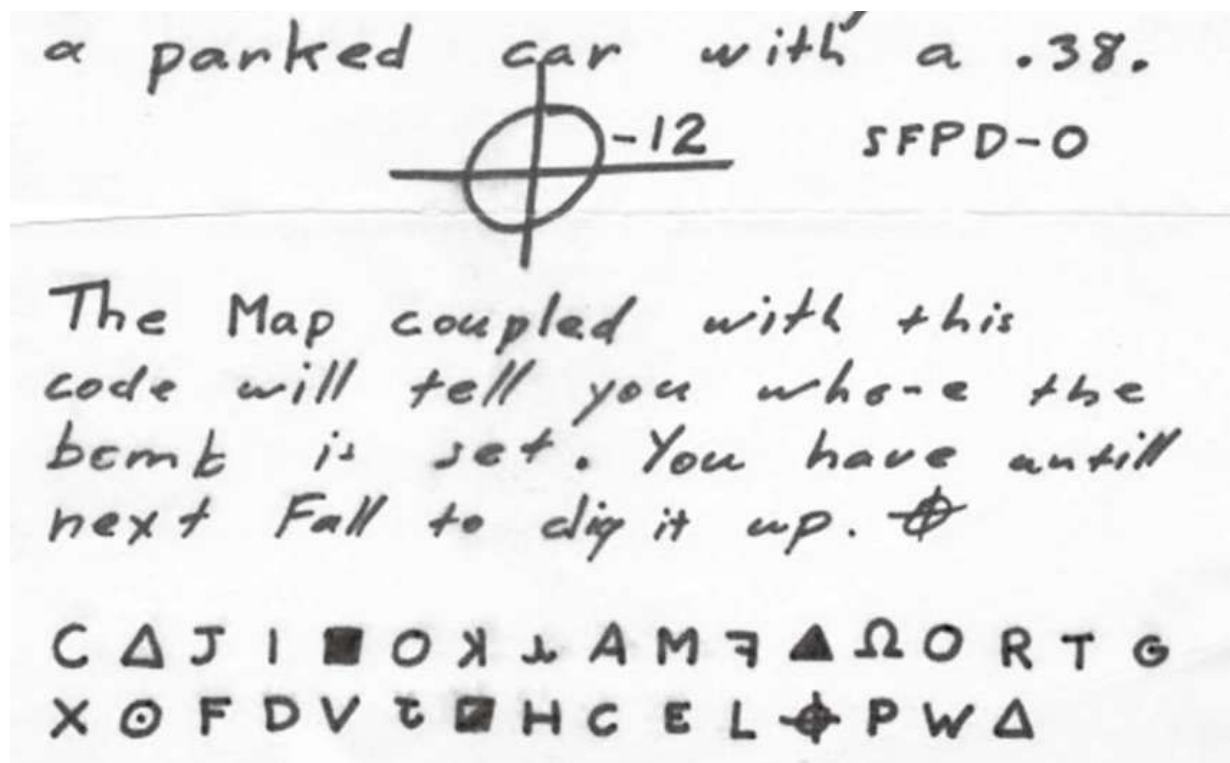 a parked car with a .38.
⌖-12 SFPD-0
The Map coupled with this
code will tell you where the
bomb is set. You have untill
next Fall to dig it up. ⌖
C Δ J I ■ O ꓘ ⅄ A M ꟻ ▲ Ω O R T G
X ⊙ F D V ㄟ ◪ H C E L ⌖ P W Δ